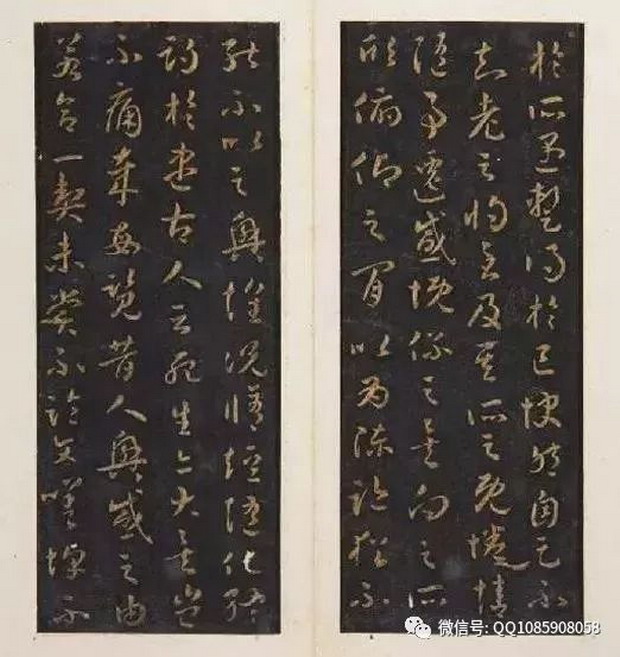 於所遇蹔得於己快然自足不
知老之將至及其所之既惓情
隨事遷感慨係之矣向之所
欣俯仰之間以為陳迹猶不
能不以之興懷況脩短隨化終
期於盡古人云死生亦大矣豈
不痛哉每覽昔人興感之由
若合一契未嘗不臨文嗟悼不
微信号: QQ1085908058